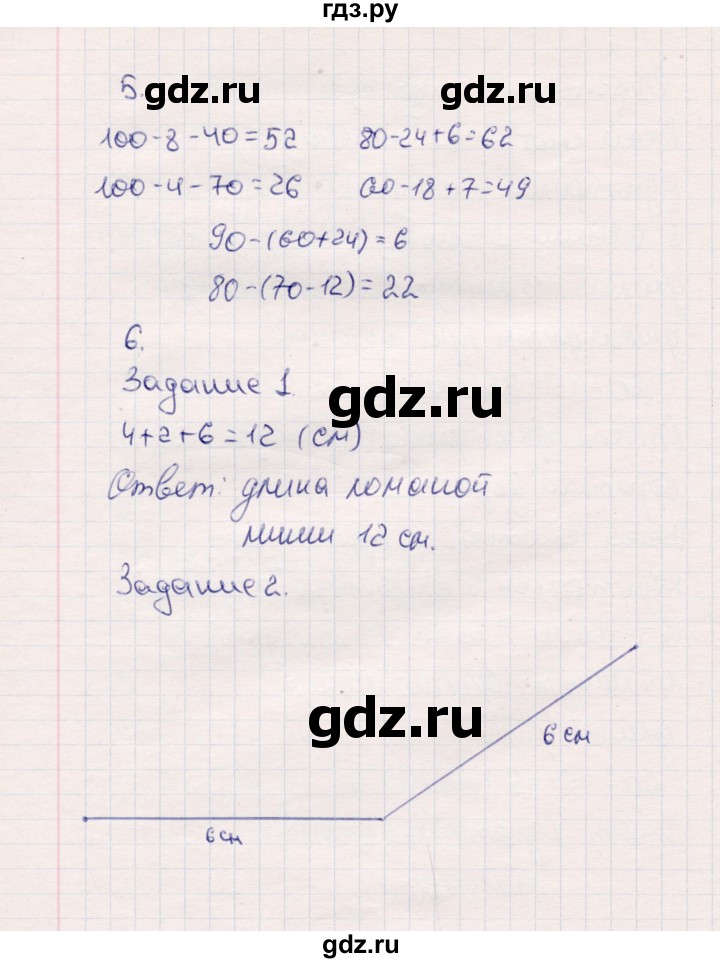 гдз.ру
5.
gdz.ru gdz.ru
100-8-40=52 80-24+6=62
100-4-70=26 60-18+7=49
90-(60+24)=6
80-(70-12)=22
6.
Задание 1.
gdz.ru
4+2+6=12 (см)
Ответ: длина ломаной
линии 12 см.
Задание 2.
gdz.ru
6 см
6 см
gdz.ru